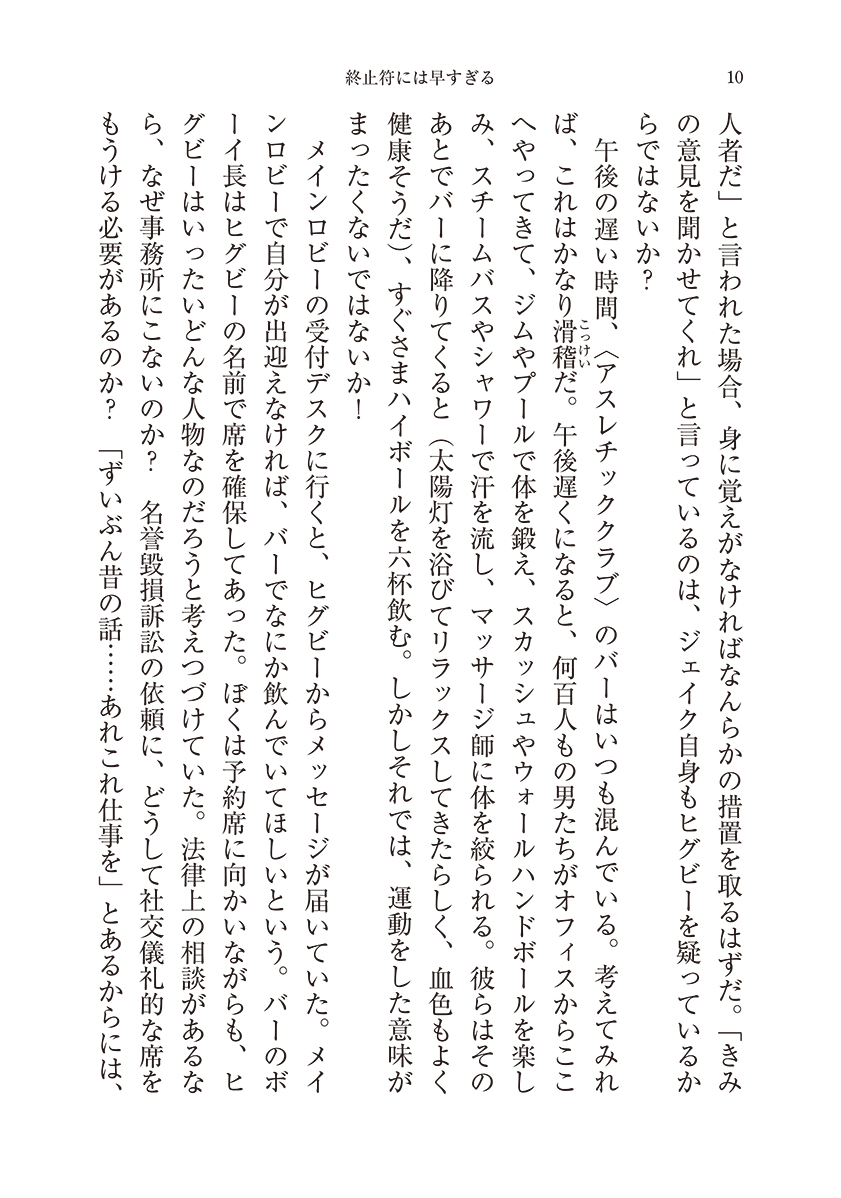 終止符には早すぎる
10
人者だ」と言われた場合、身に覚えがなければなんらかの措置を取るはずだ。「きみ
の意見を聞かせてくれ」と言っているのは、ジェイク自身もヒグビーを疑っているか
らではないか?
午後の遅い時間、〈アスレチッククラブ〉のバーはいつも混んでいる。考えてみれ
ば、これはかなり滑稽だ。午後遅くになると、何百人もの男たちがオフィスからここ
こっけい
へやってきて、ジムやプールで体を鍛え、スカッシュやウォールハンドボールを楽し
み、スチームバスやシャワーで汗を流し、マッサージ師に体を絞られる。彼らはその
あとでバーに降りてくると（太陽灯を浴びてリラックスしてきたらしく、血色もよく
健康そうだ）、すぐさまハイボールを六杯飲む。しかしそれでは、運動をした意味が
まったくないではないか!
メインロビーの受付デスクに行くと、ヒグビーからメッセージが届いていた。メイ
ンロビーで自分が出迎えなければ、バーでなにか飲んでいてほしいという。バーのボ
ーイ長はヒグビーの名前で席を確保してあった。ぼくは予約席に向かいながらも、ヒ
グビーはいったいどんな人物なのだろうと考えつづけていた。法律上の相談があるな
ら、なぜ事務所にこないのか?　名誉毀損訴訟の依頼に、どうして社交儀礼的な席を
もうける必要があるのか?　「ずいぶん昔の話……あれこれ仕事を」とあるからには、